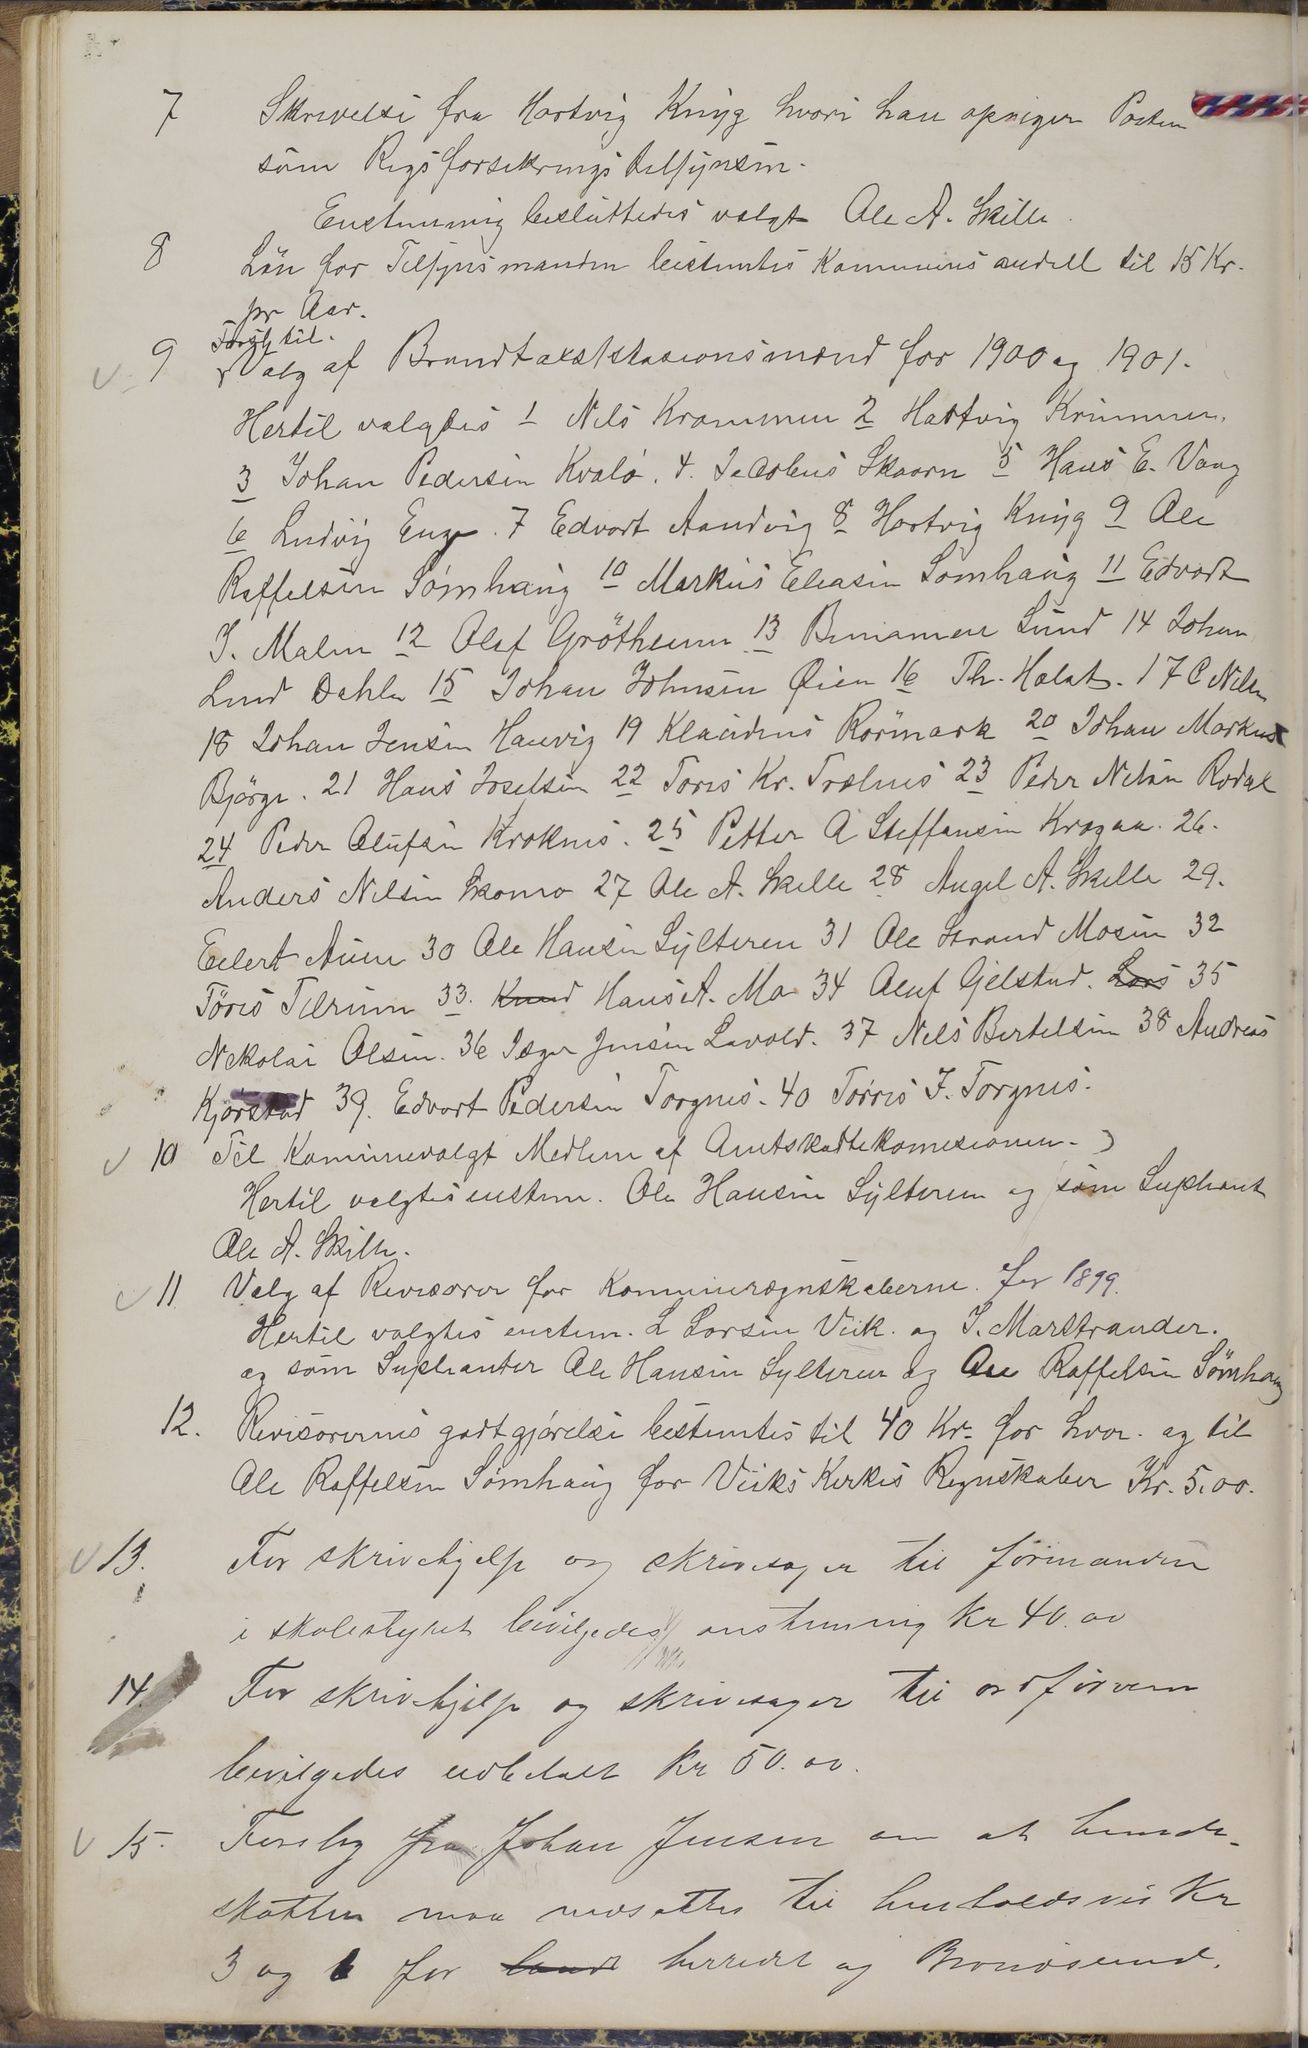 7 Skrivelse fra Hartvig Knyg hvori han opsiger Posten
som Rigsforsikrings tilsynsm.
Enstemmig besluttedes valgt Ole A. Skille.
8 Løn for Tilsynsmanden bestemtes Kommunens andell til 15 Kr.
pr Aar.
Forsl. til.
9 Valg af Brandtaxtstasionsmænd for 1900 og 1901.
Hertil valgtes 1 Nils Krommen 2 Hartvig Krimmen.
3 Johan Pedersen Kvalø. 4. Jacobus Skaarn 5 Hans E. Vang
6 Ludvig Enge. 7 Edvart Aandvig 8 Hartvig Knyg 9 Ole
Raffelsen Sømhaug 10 Markus Eliasen Sømhaug 11 Edvart
J. Malm 12 Olaf Grøtheim 13 Beniamen Lund 14 Johan
Lund Dahle 15 Johan Johnsen Øien 16 Th. Holst. 17 C Nilsen
18 Johan Jensen Hauvig 19 Klaudius Rørmark 20 Johan Markus
Bjørge. 21 Hans Josefsen 22 Toris Kr. Trælnes 23 Peder Nilsen Rodal
24 Peder Olufsen Kroknes. 25 Petter A Steffensen Kragaa. 26.
Anders Nilsen Skomo 27 Ole A. Skille 28 Angel A. Skille 29.
Eilert Aune 30 Ole Hansen Sylteren 31 Ole Strand Mosen 32
Tøris Tilrum 33. Knud Hans A. Mo 34 Oluf Gjelstad. Lars 35
Nekolai Olsen. 36 Isger Jensen Lavold. 37 Nils Bertelsen 38 Andreas
Kjørstad 39. Edvart Pedersen Torgnes. 40 Tørris J. Torgnes.
10 Til Komunevalgt Medlem af Amtskattekomesionen.
Hertil valgtes enstem. Ole Hansen Sylteren og som Supleant
Ole A. Skille.
11 Valg af Revisorer for Kommuneregnskaberne for 1899.
Hertil valgtes enstem. L Larsen Viik. og J. Marstrander.
og som Suplianter Ole Hansen Sylteren og Ole Raffelsen Sømhaug
12. Revisorernes godtgjørelse bestemtes til 40 Kr. for hver. og til
Ole Raffelsen Sømhaug for Viiks Kirkes Regnskaber Kr. 5.00.
13. For skrivehjelp og skrivesager til formanden
i skolestyret bevilgedes enstemmig Kr 40.00
14. For skrivehjelp og skrivesager til ordføreren
bevilgedes udbetalt Kr 50.00.
15. Forslag fra Johan Jensen om at hunde-
skatten maa nedsættes til henholdsvis Kr
3 og 6 for land herredet og Brønøsund.